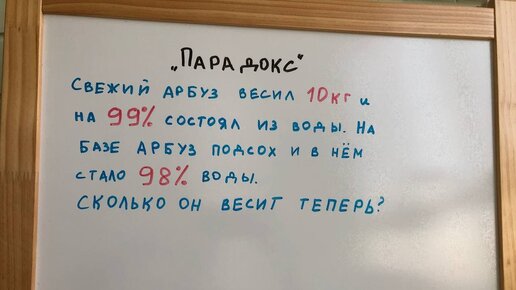 „Парадокс"
Свежий арбуз весил 10кг и
на 99% состоял из воды. На
базе арбуз подсох и в нём
стало 98% воды.
Сколько он весит теперь?